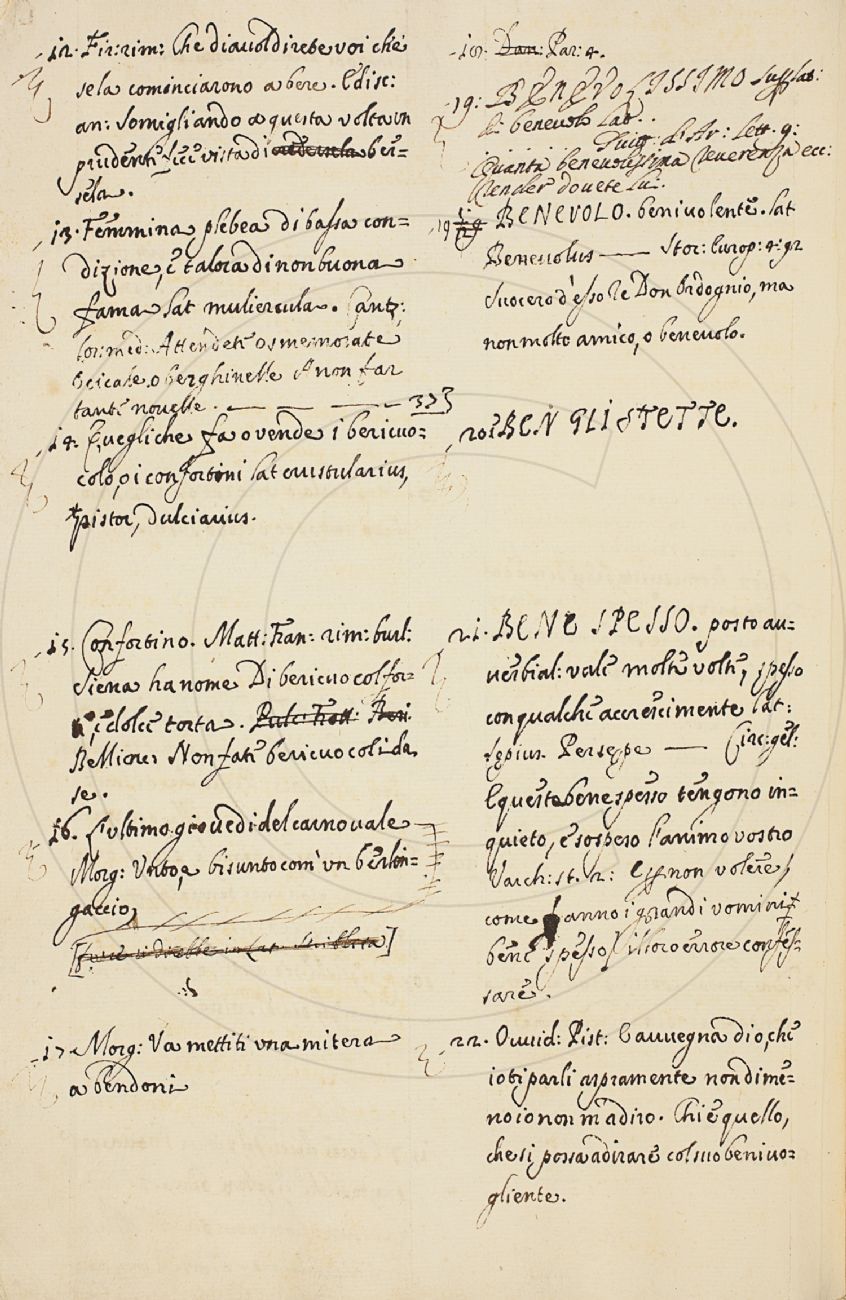 12. Fir: rim: Che diavol direte voi che
se la cominciarono a bere. E disc:
an: Somigliando a questa volta un
prudente vista di ber=
sela.
13. Femmina plebea di bassa con=
dizione, e talora di non buona
fama Lat muliercula. Cant:
Attendete osmemorate
Cicale, o berghinelle e non far
tante novelle. — — — — 373
14. Quegli che fa o vende i bericuo=
coli, o i confortini Lat crustularius,
pistor, dulciarius.
15. Confortino. Matt: Fran: rim: burl:
Siena ha nome Di bericuocol for=
te, e dolce torta.
Bellinc: Non fate bericuocoli da
se.
16. L'ultimo giovedi del carnovale
Morg: Unto, e bisunto com' un berlin=
gaccio,
17. Morg: Va mettiti una mitera
a bendoni
18. Dan: Par: 4.
19: BENEVOLISSIMO Suplat:
di benevolo Lat. .
Quanta benevolissima reverenza ecc:
render dovete
19 BENEVOLO. benivolente. Lat
Benevolus — Stor: Europ: 4: 92
Suocero d'esso Re Don Ordognio, ma
non molto amico, o benevolo.
20: BEN GLI STETTE.
21. BENE SPESSO. posto av=
verbial: vale molte volte, spesso
con qualche accrescimento Lat:
sępius. Persępe — Circ: gel:
E queste bene spesso tengono in=
quieto, e sospeso l'animo vostro
Varch: st. 12: E non volere,
come fanno i grandi uomini
bene spesso il loro errore confes=
sare.
22. Ovvid: Pist: E avvegna dio, che
io ti parli aspramente non dime=
no io non m'adiro. Chi è quello,
che si possa adirare col suo benivo=
gliente.